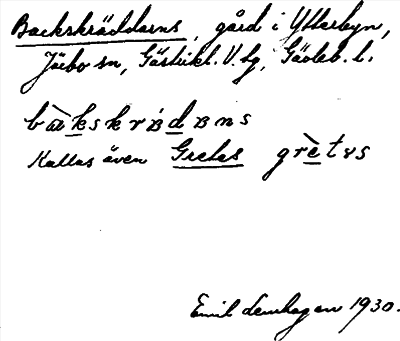 Backskräddarns, gård i Ytterbyn,
Järbo sn, Gästrikl. V. tg, Gävleb. l.
Kallas även Gretas
Emil Lemhagen 1930.